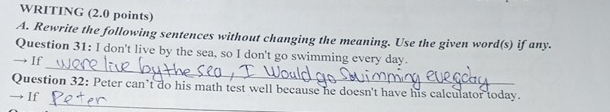 WRITING (2.0 points)
A. Rewrite the following sentences without changing the meaning. Use the given word(s) if any.
Question 31: I don't live by the sea, so I don't go swimming every day.
→ If were live by the sea, I would go swimming everyday
Question 32: Peter can't do his math test well because he doesn't have his calculator today.
→ If Peter